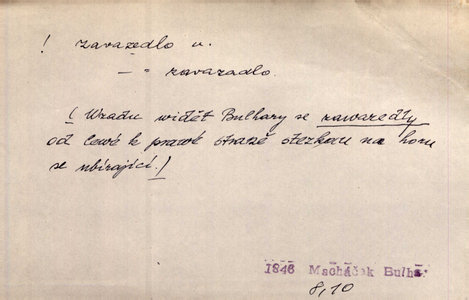 ! zavazedlo n.
— " zavazadlo.
(Wzadu widět Bulhary se zawazedly
od lewé k prawé straně stezkau na horu
se ubírající.)
1846 Macháček Bulhař
8, 10